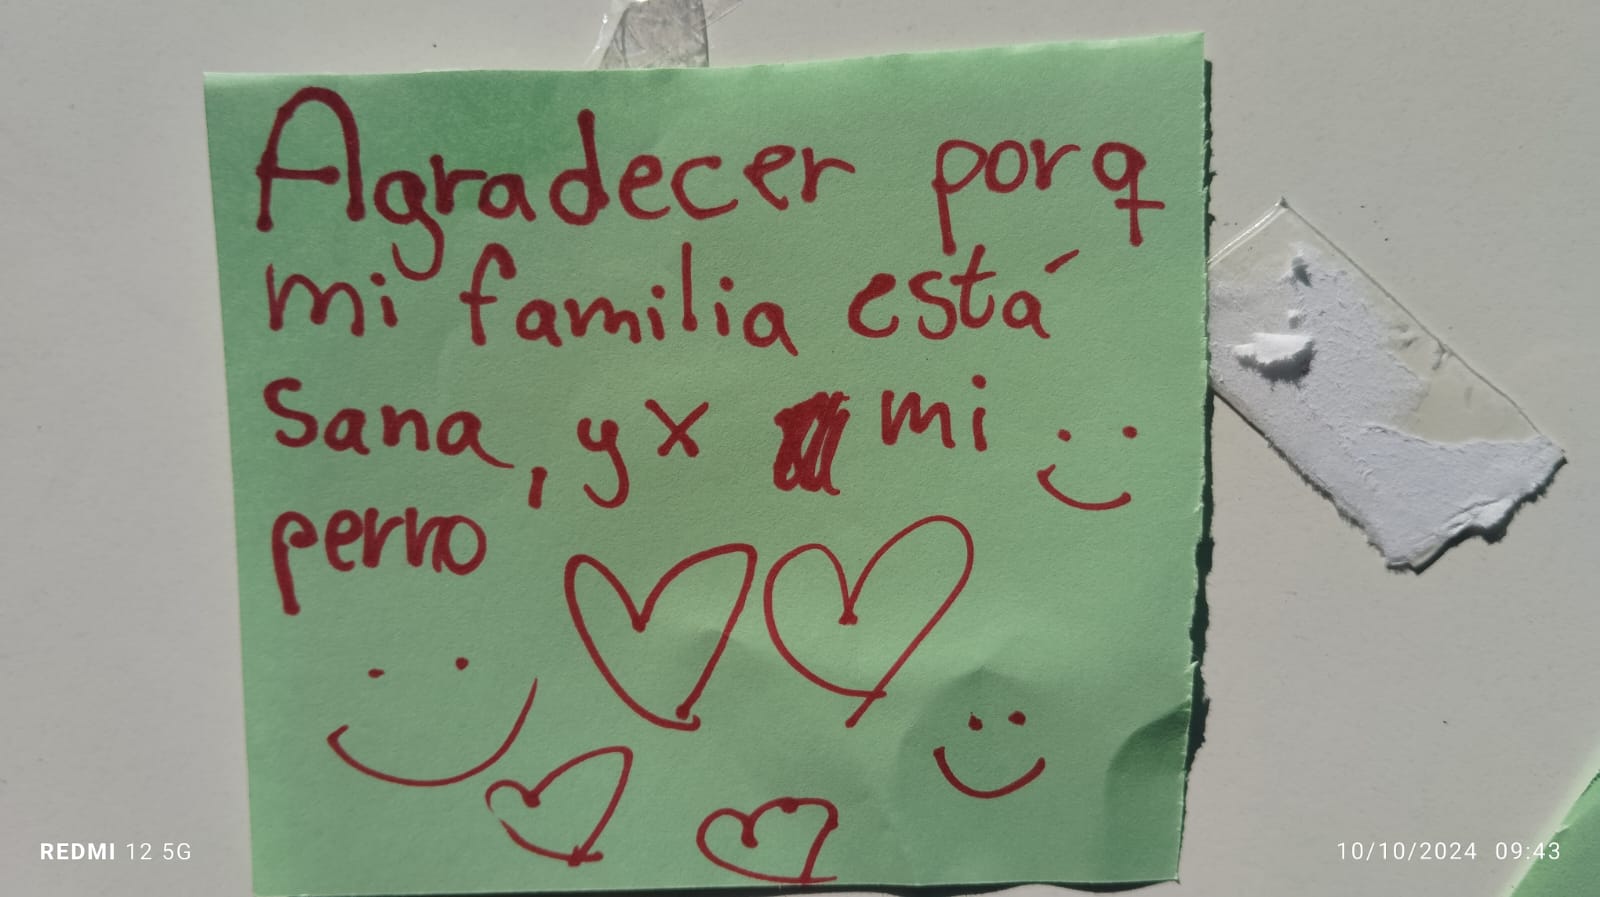 Agradecer porq
mi familia está
sana, y x mi
perro
REDMI 12 5G
10/10/2024 09:43